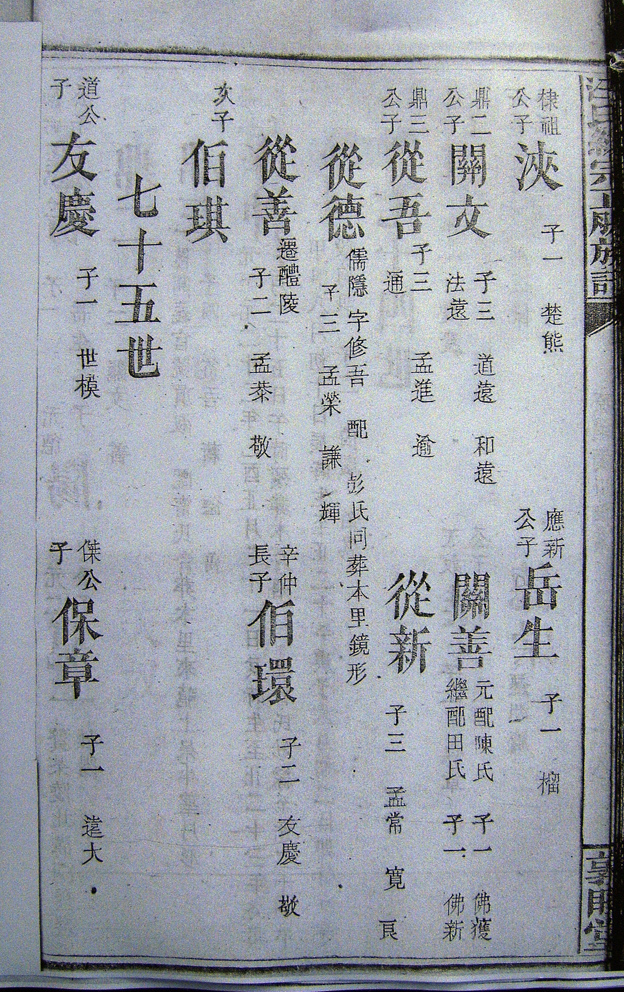 棣祖公子 浹 子一 楚熊
應新公子 岳生 子一 榴
鼎二公子 關文 子三 道遠 和遠 法遠
關善 元配陳氏 子一 佛獲 繼配田氏 子一 佛新
鼎三公子 從吾 子三 孟進 逾 通
從新 子三 孟常 寬 良
從德 儒隱 字修吾 配 彭氏同葬本里鏡形 子三 孟榮 謙 輝
從善 遷醴陵 子二 孟恭 敬
辛仲長子 伯環 子二 友慶 敬
次子 伯琪
七十五世
道公子 友慶 子一 世模
傑公子 保章 子一 遠大